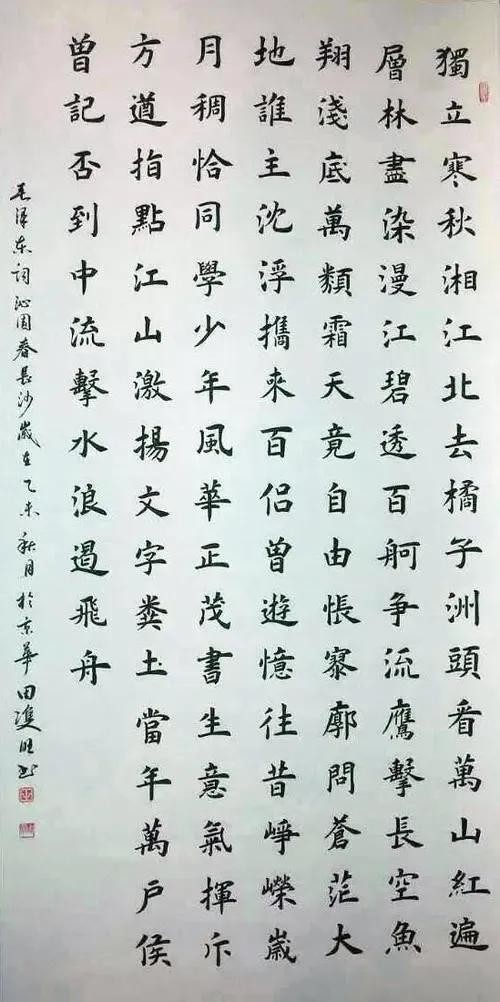 獨立寒秋湘江北去橘子洲頭看萬山紅遍
層林盡染漫江碧透百舸争流鷹擊長空魚
翔淺底萬類霜天竟自由悵寥廓問蒼茫大
地誰主沈浮攜來百侣曾遊憶往昔崢嶸歲
月稠恰同學少年風華正茂書生意氣揮斥
方遒指點江山激揚文字糞土當年萬户侯
曾記否到中流擊水浪遏飛舟
毛泽东词沁园春長沙歲在乙未秋月於京華田雙旺书